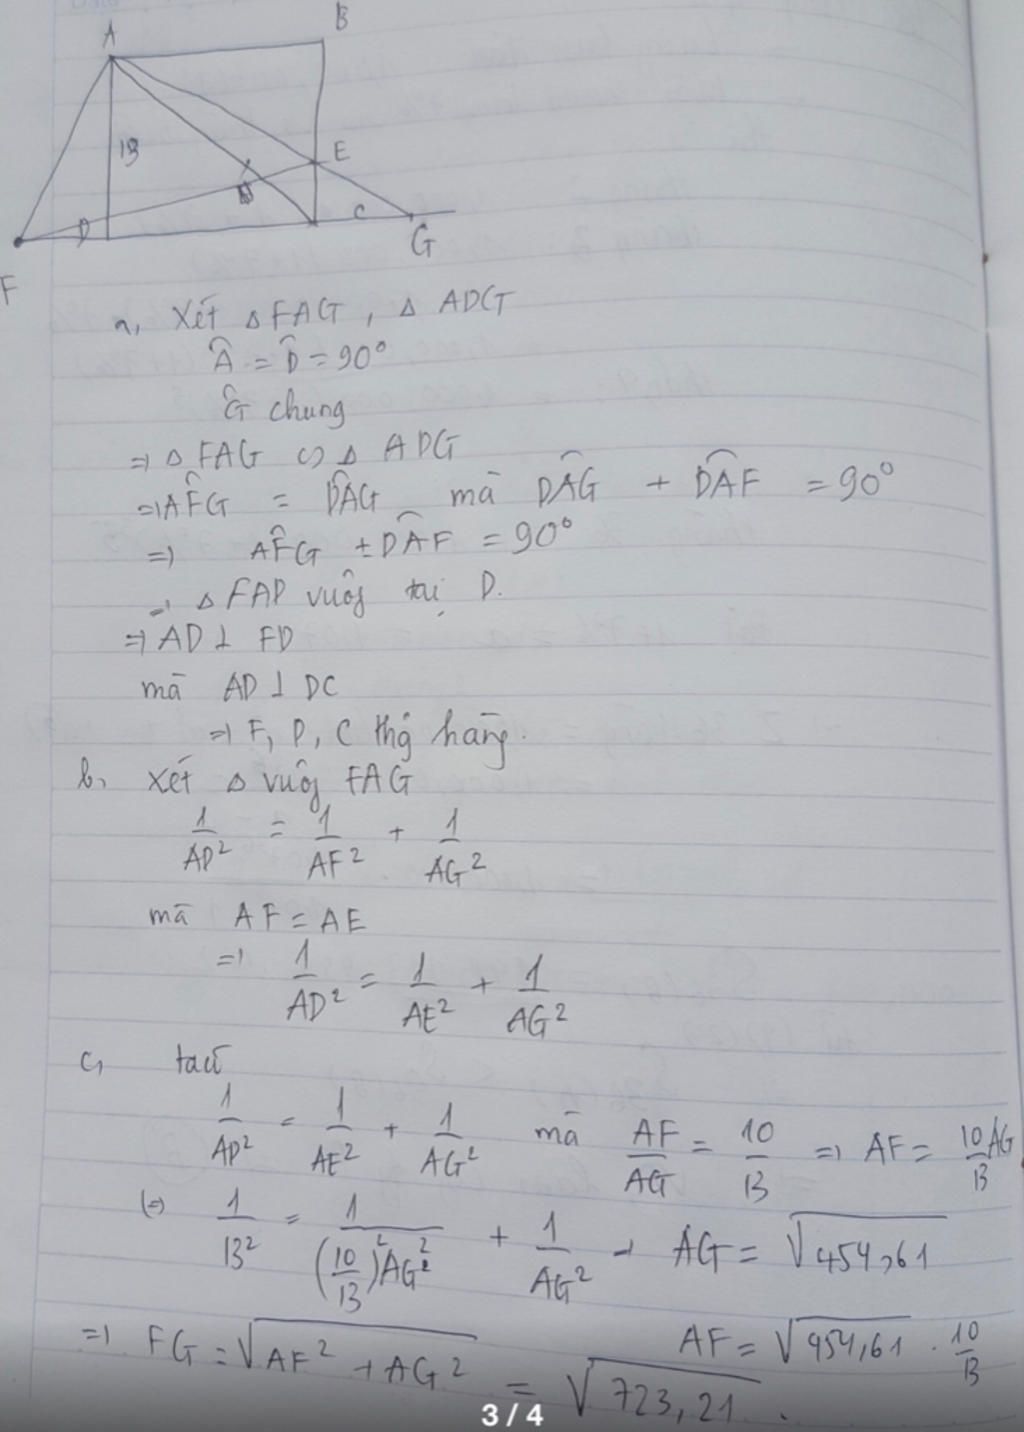 A
B
13
E
D
C
G
F
a, Xét △ FAG, △ ADG
Â = D̂ = 90°
Ĝ chung
=> △ FAG ∽ △ ADG
=> AF̂G = DÂG mà DÂG + DÂF = 90°
=> AF̂G + DÂF = 90°
=> △ FAD vuôg tại D.
=> AD ⊥ FD
mà AD ⊥ DC
=> F, D, C thg hàng.
b, Xét △ vuôg FAG
1/AD² = 1/AF² + 1/AG²
mà AF = AE
=> 1/AD² = 1/AE² + 1/AG²
c, ta có
1/AD² = 1/AE² + 1/AG² mà AF/AG = 10/13 => AF = 10/13 AG
(=> 1/13² = 1/((10/13)² AG²) + 1/AG² → AG = √454,61
AF = √454,61 . 10/13
=> FG = √AF² + AG² = √723,21.
3 / 4